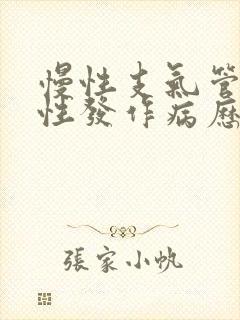 慢性支氣管
性發作病歷
張家小帆